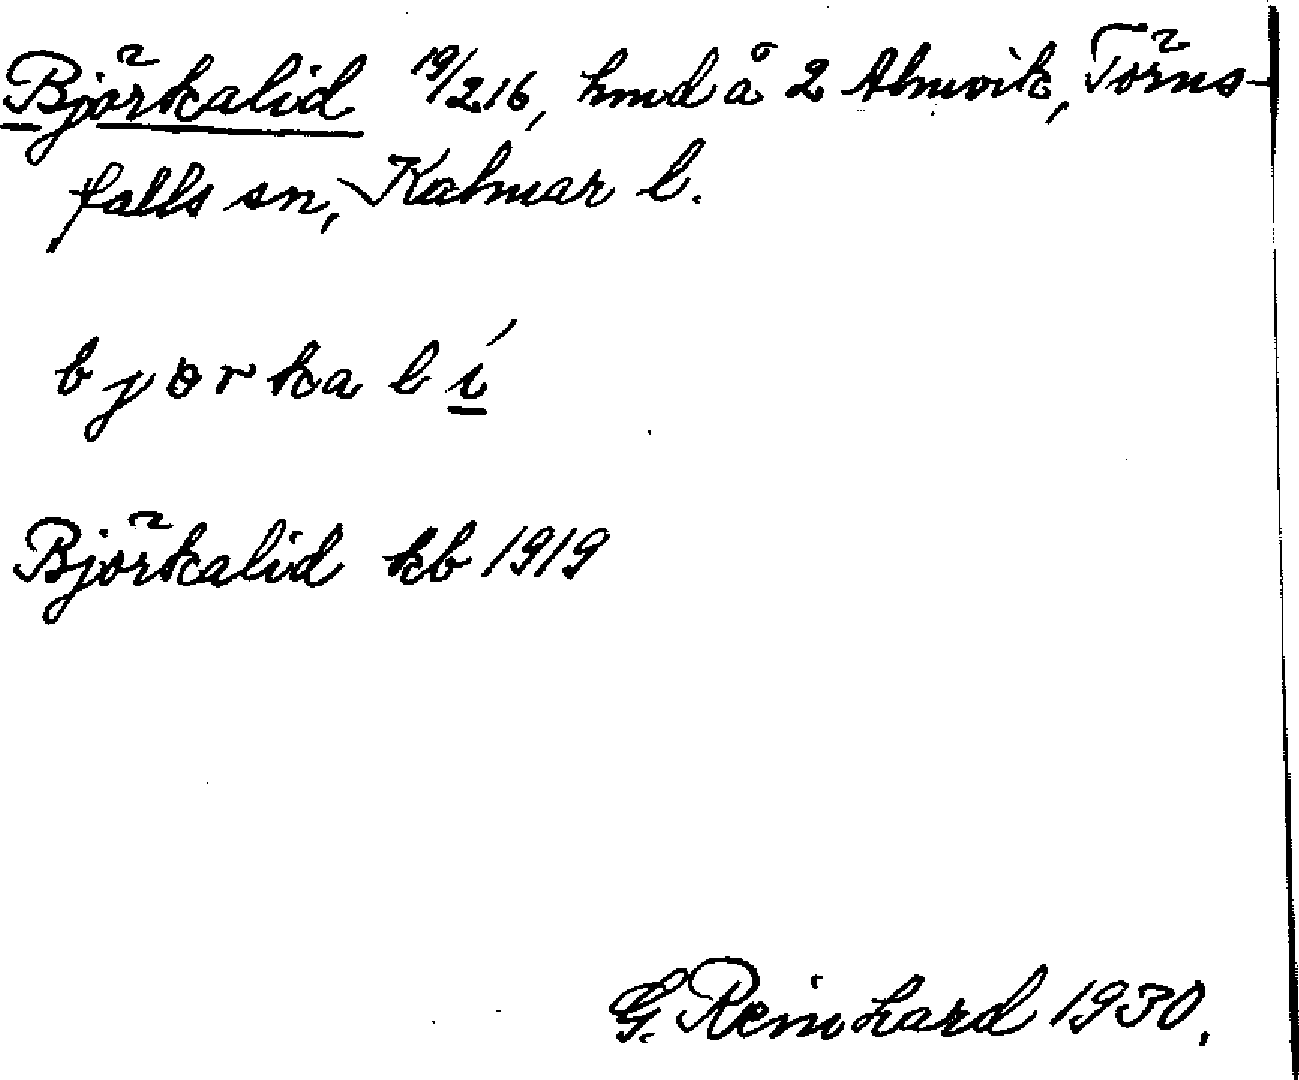 Björkalid 19/216, hmd å 2 Almvik, Törns-
falls sn, Kalmar l.
bjɵrkalí
Björkalid kb 1919
G. Reinhard 1930.